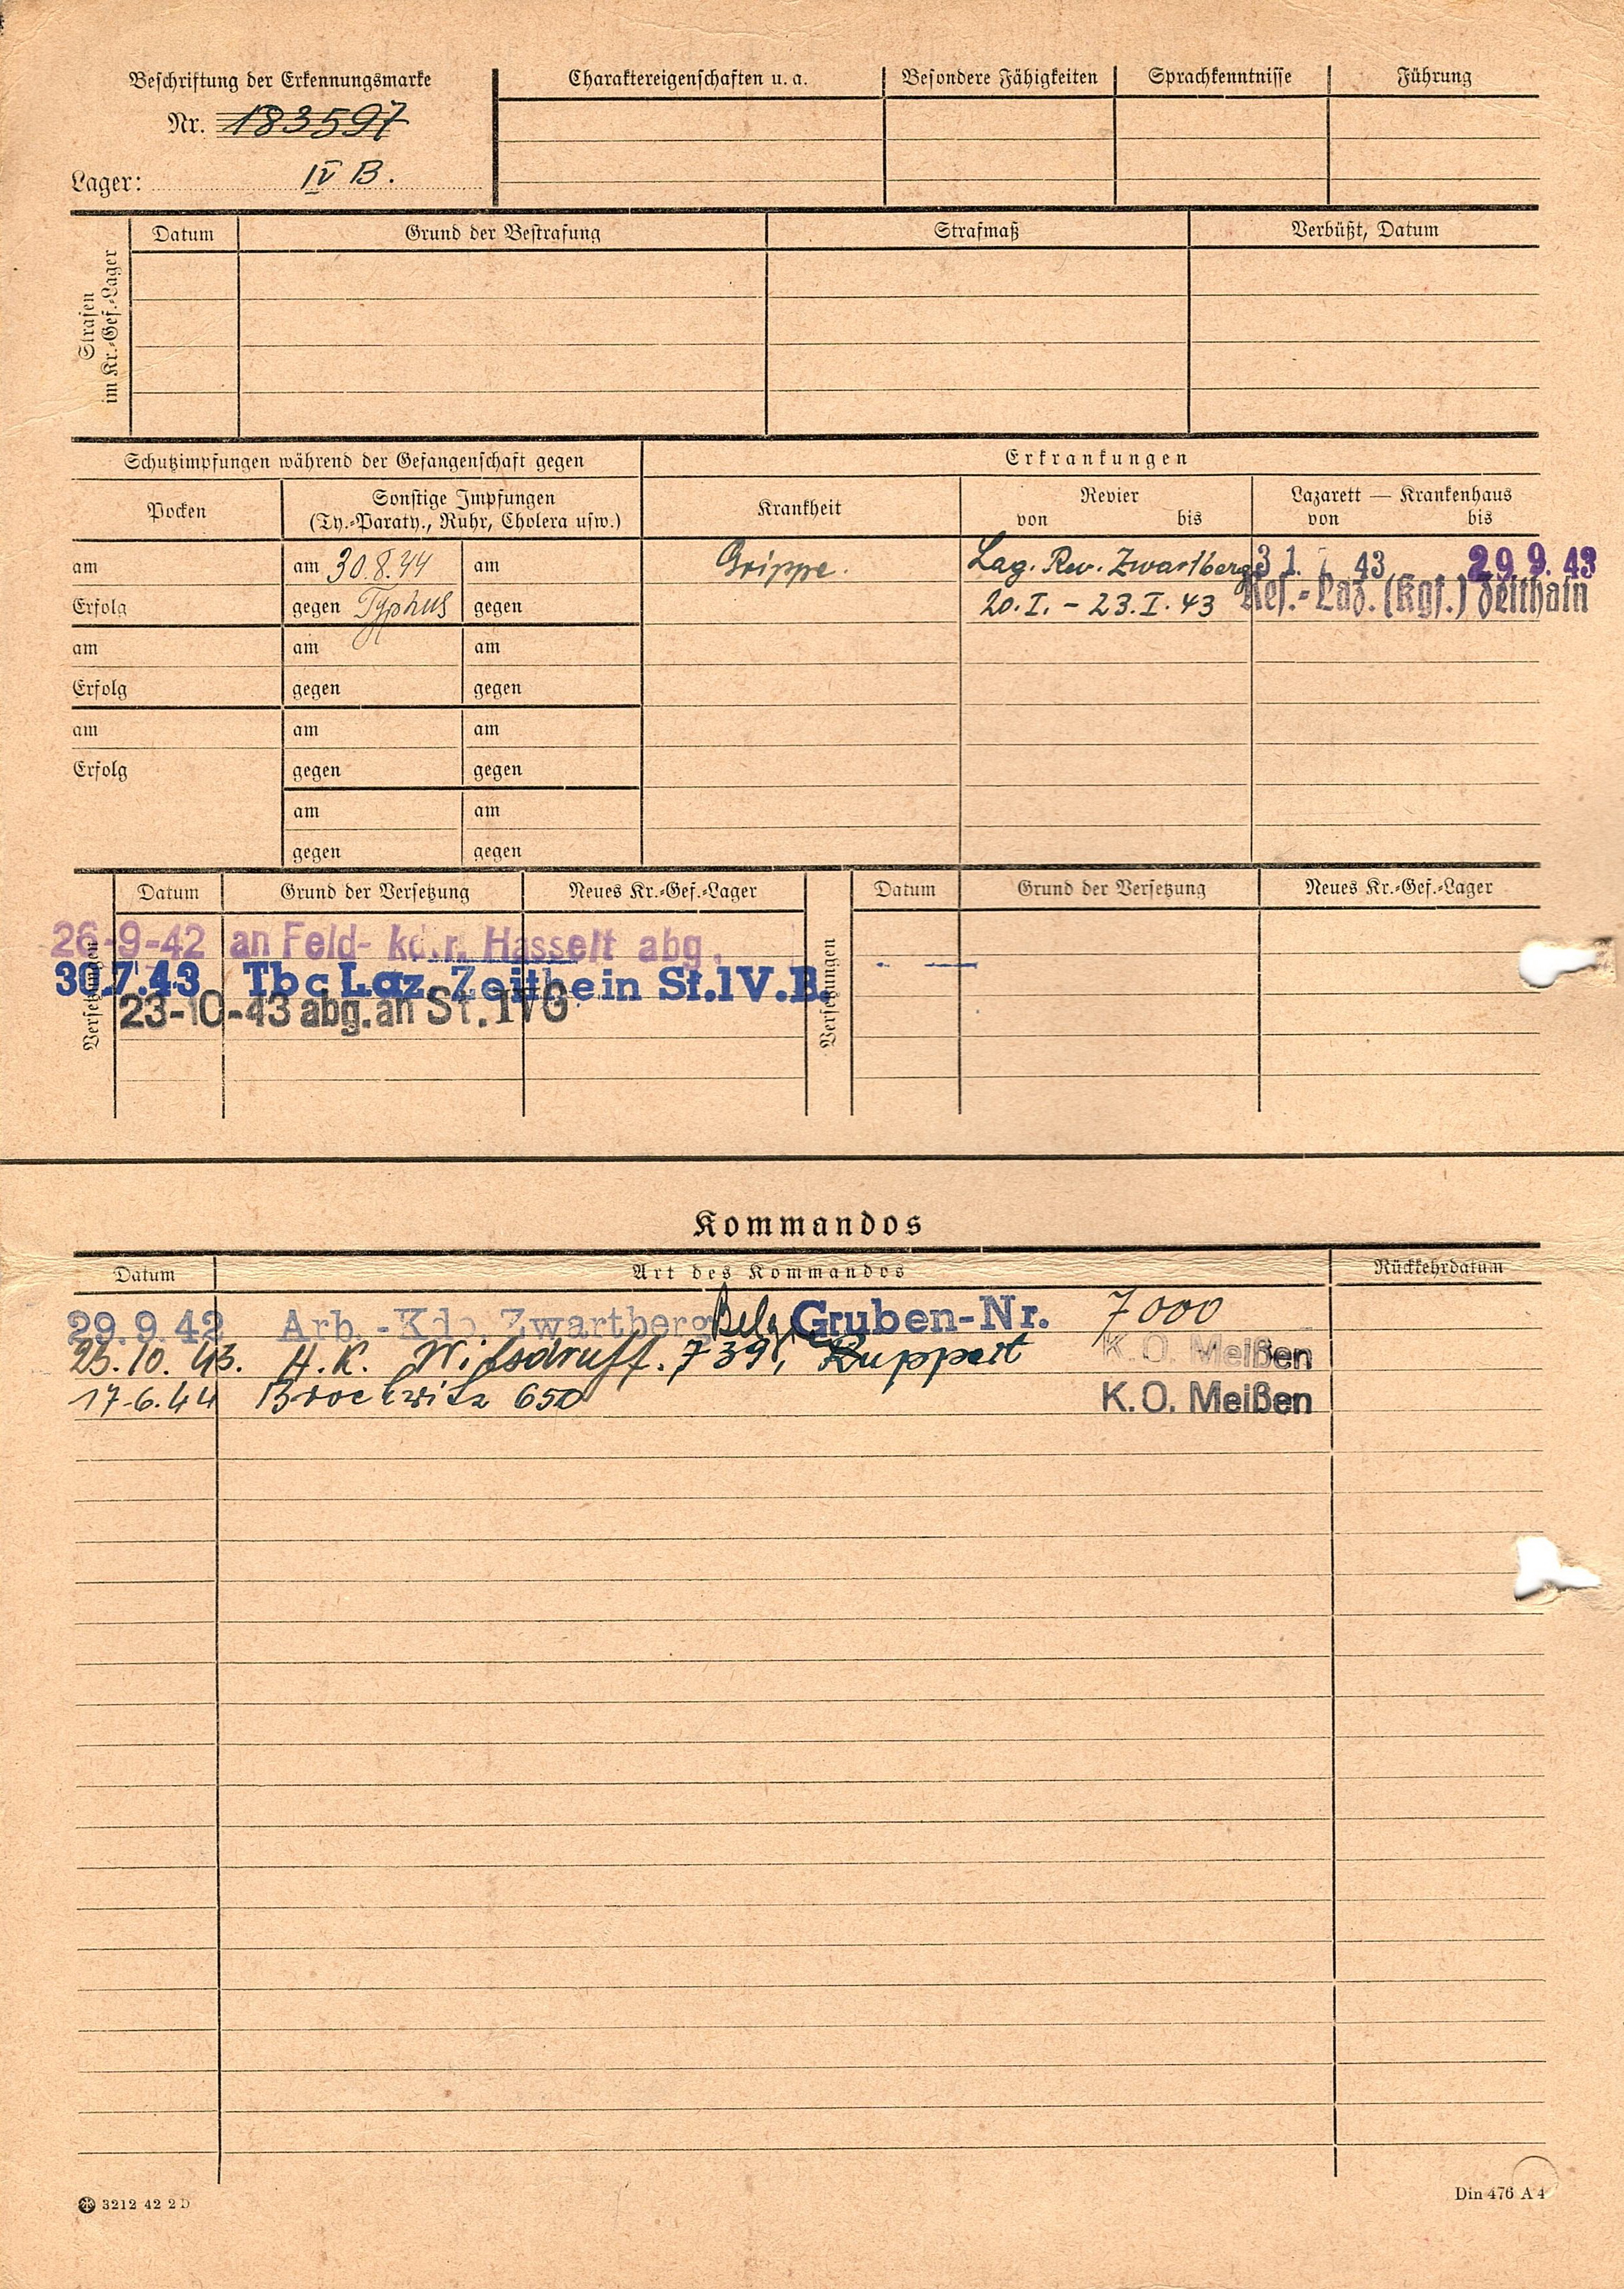 Beschriftung der Erkennungsmarke
Nr. 183597
Lager: IV B.
Charaktereigenschaften u. a.
Besondere Fähigkeiten
Sprachkenntnisse
Führung
Strafen
im Kr.-Gef.-Lager
Datum
Grund der Bestrafung
Strafmaß
Verbüßt, Datum
Schutzimpfungen während der Gefangenschaft gegen
Erkrankungen
Pocken
Sonstige Impfungen
(Ty.-Paraty., Ruhr, Cholera usw.)
Krankheit
Revier
von bis
Lazarett — Krankenhaus
von bis
am am 30.8.44 am
Grippe. Lag. Rev. Zwartberg 31. 7 43 29.9.43
Erfolg gegen Typhus gegen
20.I. - 23.I.43 Res.-Laz. (Kgf.) Zeithain
am am am
Erfolg gegen gegen
am am am
Erfolg gegen gegen
am am
gegen gegen
Versetzungen
Datum
Grund der Versetzung
Neues Kr.-Gef.-Lager
Versetzungen
Datum
Grund der Versetzung
Neues Kr.-Gef.-Lager
26-9-42 an Feld-kd.r. Hasselt abg.
30.7.43 Tbc Laz. Zeithein St.IV.B.
23-10-43 abg. an St. IVG
Kommandos
Datum
Art des Kommandos
Rückkehrdatum
29.9.42 Arb.-Kdo. Zwartberg Belg. Gruben-Nr. 7000
23.10.43. A.K. Wilsdruff. 739, Ruppert K.O. Meißen
17.6.44 Brockwitz 650 K.O. Meißen
3212 42 2 D
Din 476 A 4